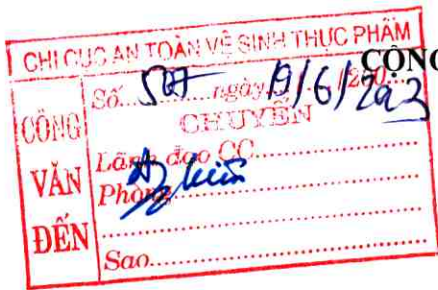 CHI CỤC AN TOÀN VỆ SINH THỰC PHẨM
CỘNG
CÔNG VĂN ĐẾN
Số 507 ngày 19/6/2023
CHUYỂN
Lãnh đạo CC
Phòng
Sao